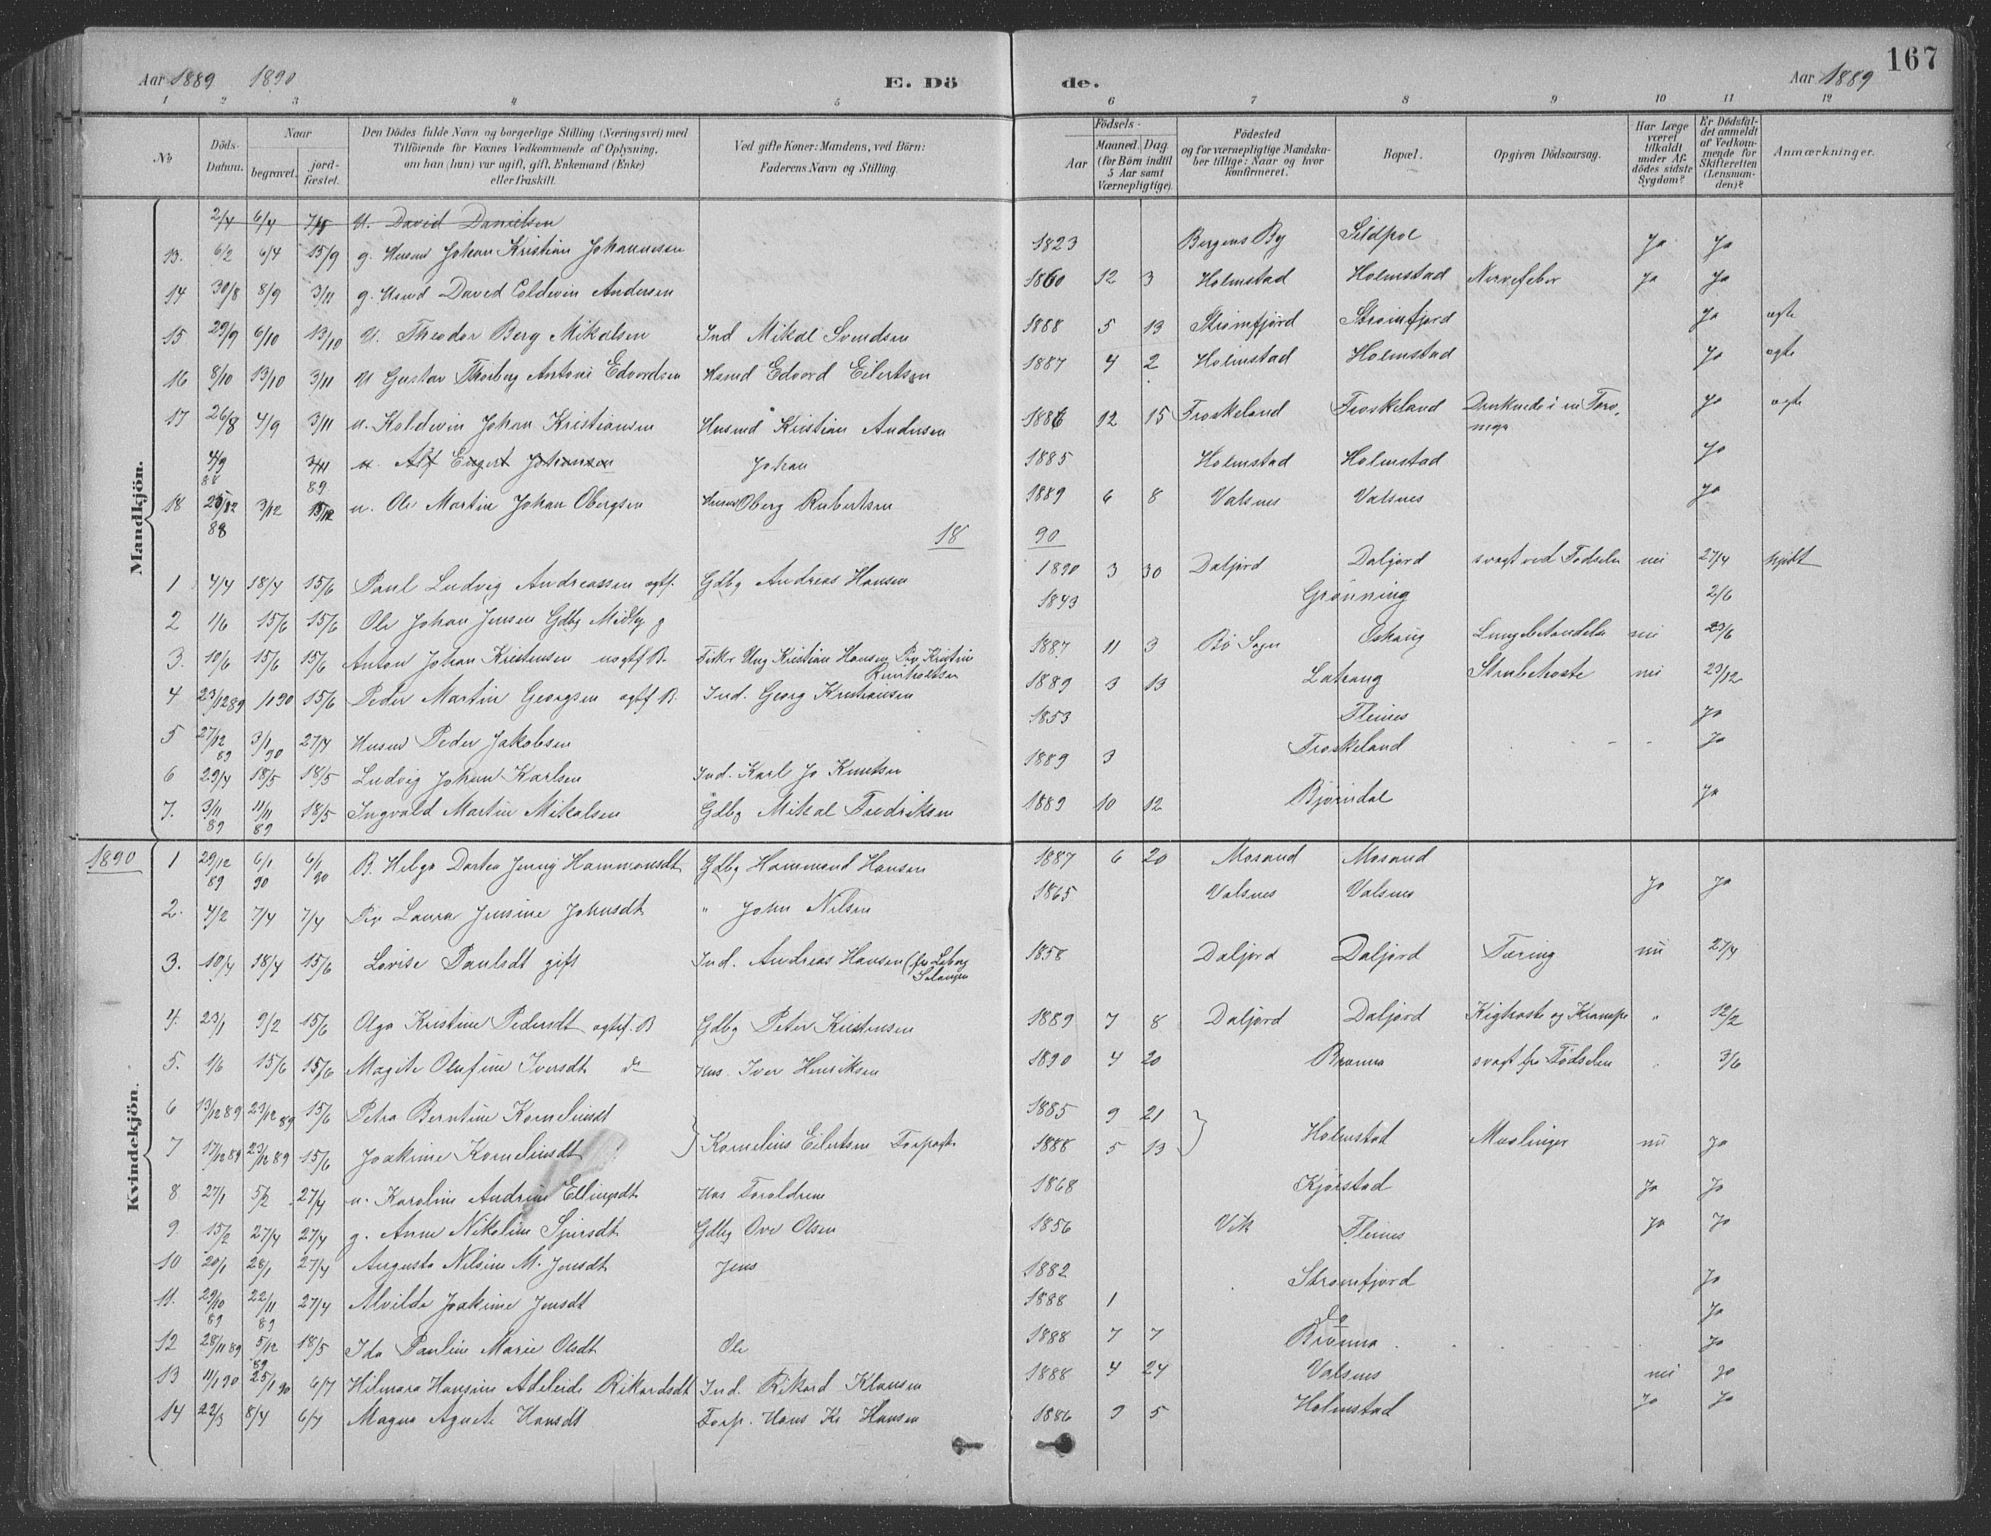 Aar 1889 1890 E. Dö de. Aar 1889 167
1 2 3 4 5 6 7 8 9 10 11 12
No
Döds-Datum.
Naar
begravet.
jord-fæstet.
Den Dödes fulde Navn og borgerlige Stilling (Næringsvei) med
Tilföiende for Voxnes Vedkommende af Oplysning,
om han (hun) var ugift, gift, Enkemand (Enke)
eller fraskilt.
Ved gifte Koner: Mandens, ved Börn:
Faderens Navn og Stilling.
Födsels-
Aar
Maaned. Dag
(for Börn indtil
5 Aar samt
Værnepligtige).
Födested
og for værnepligtige Mandska-
ber tillige: Naar og hvor
konfirmeret.
Bopæl.
Opgiven Dödsaarsag.
Har Læge
været
tilkaldt
under Af-
dödes sidste
Sygdom?
Er Dödsfal-
det anmeldt
af Vedkom-
mende for
Skifteretten
(Lensman-
den)?
Anmærkninger.
Mandkjön.
2/4 6/4 U. David Danielsen
13. 6/2 6/4 15/9 g. Husmd Johan Kristian Johannesen 1823 Bergens By Sildpol Ja Ja
14 30/8 8/9 3/11 g. Husmd David Coldevin Andersen 1860 12 3 Holmstad Holmstad Nervefeber Ja Ja
15 29/9 6/10 13/10 U. Theodor Berg Mikalsen Ind Mikal Svendsen 1888 5 13 Strømfjord Strømfjord Ja ægte
16 8/10 13/10 3/11 U Gustav Thorberg Antoni Edvardsen Husmd Edvard Eilertsen 1887 4 2 Holmstad Holmstad Ja ægte
17 26/8 4/9 3/11 u. Koldevin Johan Kristiansen Husmd Kristian Andersen 1886 12 15 Froskeland Froskeland Ja ægte
4/9 88 3/11 89 u. Alf Engert Johansen Johan 1885 Holmstad Holmstad Ja
18 3/12 15/12 u. Ole Martin Johan Obergsen Husmd Oberg Robertsen 1889 6 8 Valsnes Valsnes Ja
88 18 90
1 4/4 18/4 15/6 Paul Ludvig Andreassen ægtf. Gdbg Andreas Hansen 1890 3 30 Daljord Daljord svagt ved Fødselen nei 27/4
2 1/6 15/6 15/6 Ole Johan Jensen Gdbg Midby g 1843 Grønning 2/6
3. 10/6 15/6 15/6 Anton Johan Kristensen uægtf. B. Fisker Ung Kristian Hansen Pig Kristine 1887 11 3 Bø Sogn Oshaug Lungebetændelse nei 23/6
4 23/12 89 90 15/6 Peder Martin Georgsen ægtf B. Ind. Georg Kristiansen 1889 3 13 Latrang Strubehoste nei 23/12
5 27/12 89 3/1 90 27/4 Husmd Peder Jakobsen 1853 Fleines Ja
6 29/4 18/5 18/5 Ludvig Johan Karlsen Ind. Karl Jo Knutsen 1889 3 Froskeland Ja
7. 3/11 89 11/11 89 18/5 Ingvald Martin Mikalsen Gdbg Mikal Fredriksen 1889 10 12 Bjørndal Ja
1890
Kvindekjön.
1 29/12 89 6/1 90 6/1 90 B. Helga Dortea Jenny Hammondsdt Gdbg Hammond Hansen 1887 6 20 Mosand Mosand
2. 4/2 7/4 7/4 Pig Laura Jensine Johnsdt " John Nilsen 1865 Valsnes Valsnes Ja Ja
3. 10/4 18/4 15/6 Lovise Paulsdt gift Ind. Andreas Hansen 1858 Daljord Daljord Tæring nei 27/4
4. 23/1 9/2 15/6 Olga Kristine Pedersdt ægtef. B Gdbg Peter Kristensen 1889 7 8 Daljord Daljord Kighoste og Krampe " 12/2
5. 1/6 15/6 15/6 Magite Olufine Iversdt do Hus. Iver Henriksen 1890 4 20 Brønna svagt fra Fødselen " 3/6
6 13/12 89 23/12 89 15/6 Petra Berntine Korneliusdt 1885 9 21
7 17/12 89 23/12 89 15/6 Joakime Korneliusdt Kornelius Eilertsen 1888 5 13 Holmstad Mæslinger nei Ja
8 27/1 5/2 27/4 u. Karoline Andrine Ellingsdt Hos Forældrene 1868 Kjørstad Ja Ja
9 15/2 27/4 27/4 g. Anne Nikoline Sjursdt Gdbg Ove Olsen 1856 Vik Fleines Ja Ja
10 20/1 28/1 27/4 Augusta Nilsine M. Jensdt Jens 1882 Strømfjord Ja
11. 29/10 89 22/11 89 27/4 Alvilde Joakime Jensdt 1888 1 Do Ja
12 28/11 89 5/12 89 18/5 Ida Pauline Marie Olsdt Ole 1888 7 7 Brønna Ja
13 11/1 90 25/1 90 6/7 Hilmara Hansine Adeleide Rikardsdt Ind. Rikard Klausen 1888 4 24 Valsnes nei Ja
14 22/3 8/4 6/7 Magna Agnete Hansdt Forp. Hans Kr Hansen 1886 9 5 Holmstad Ja Ja